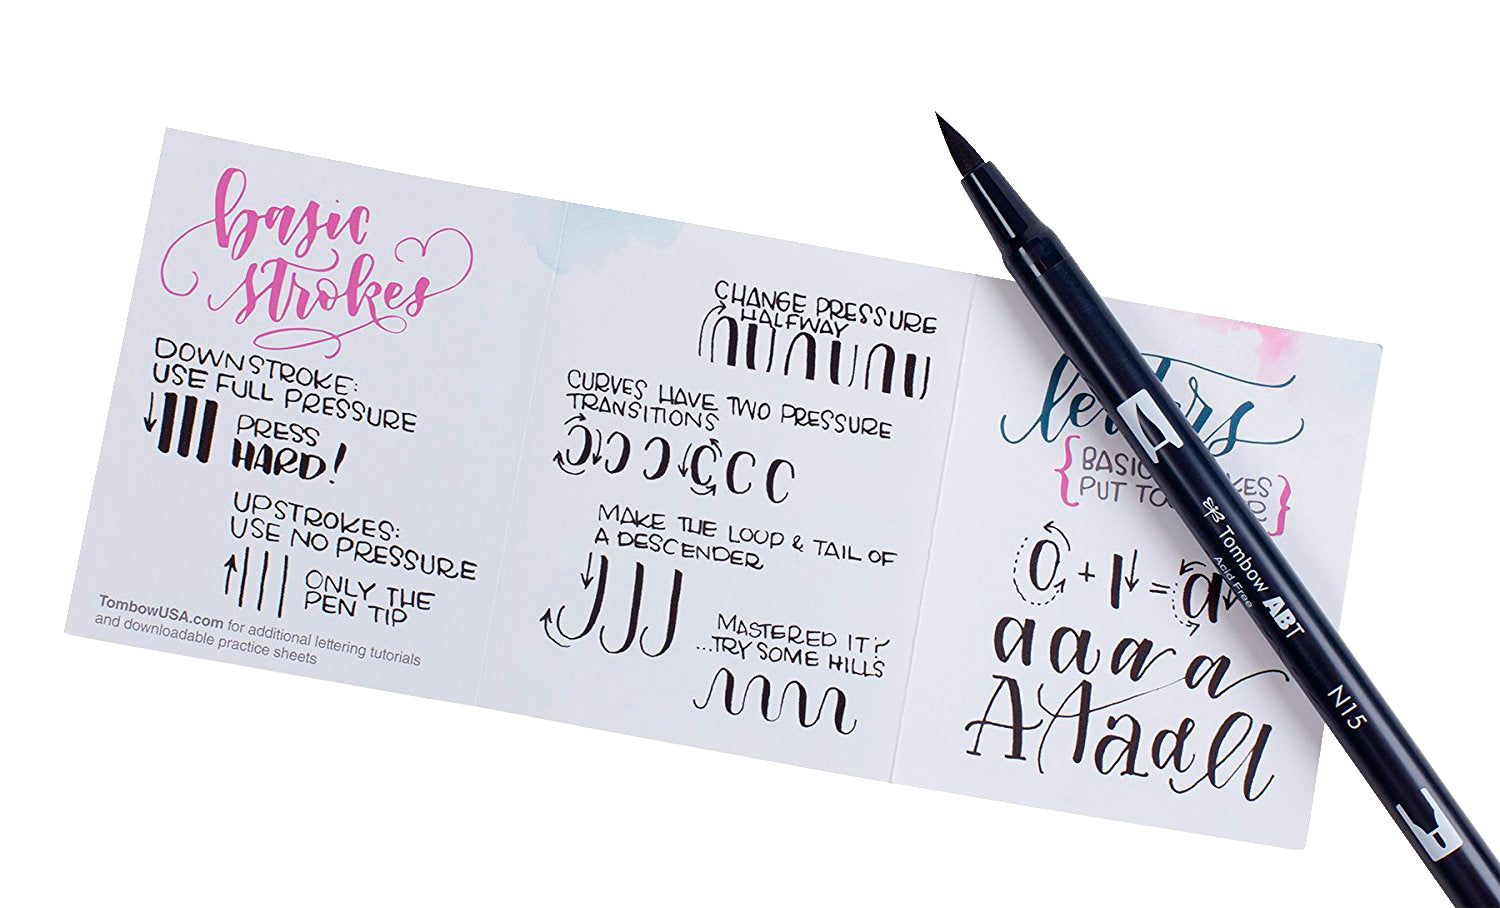 basic
strokes
DOWNSTROKE:
USE FULL PRESSURE
PRESS
HARD!
UPSTROKES:
USE NO PRESSURE
ONLY THE
PEN TIP
TombowUSA.com for additional lettering tutorials
and downloadable practice sheets
CHANGE PRESSURE
HALFWAY
CURVES HAVE TWO PRESSURE
TRANSITIONS
MAKE THE LOOP & TAIL OF
A DESCENDER
MASTERED IT?
...TRY SOME HILLS
letters
{BASIC
PUT
a a a a
A A a a a
Tombow ABT
Acid Free
N15